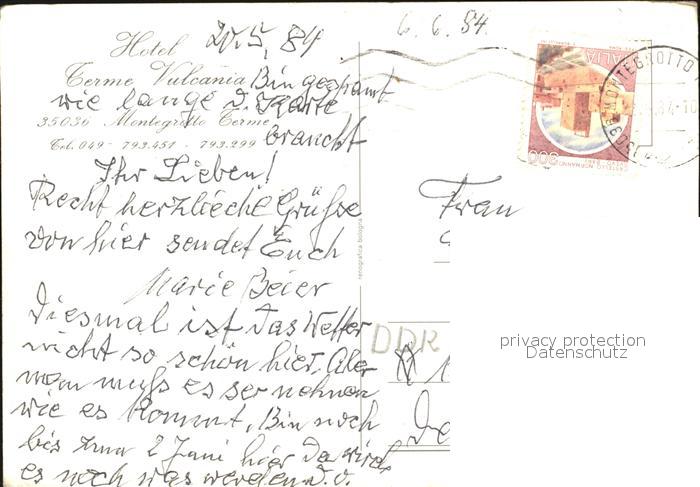 6. 6. 84.
Hotel 20.5.84
Terme Vulcania Bin gespannt
wie lange d. Karte
35036 Montegrotto Terme
braucht
Tel. 049 - 793.451 - 793.299
Ihr Lieben!
Recht herzlieche Grüße
von hier sendet Euch
Marie Beier
Diesmal ist das Wetter
nicht so schön hier. Aber
man muß es so nehmen
wie es kommt. Bin noch
bis zum 2 Juni hier da wird
es noch was werden.
renografica bologna
ITALIA
300
MONTEGROTTO
Frau
DDR
privacy protection
Datenschutz